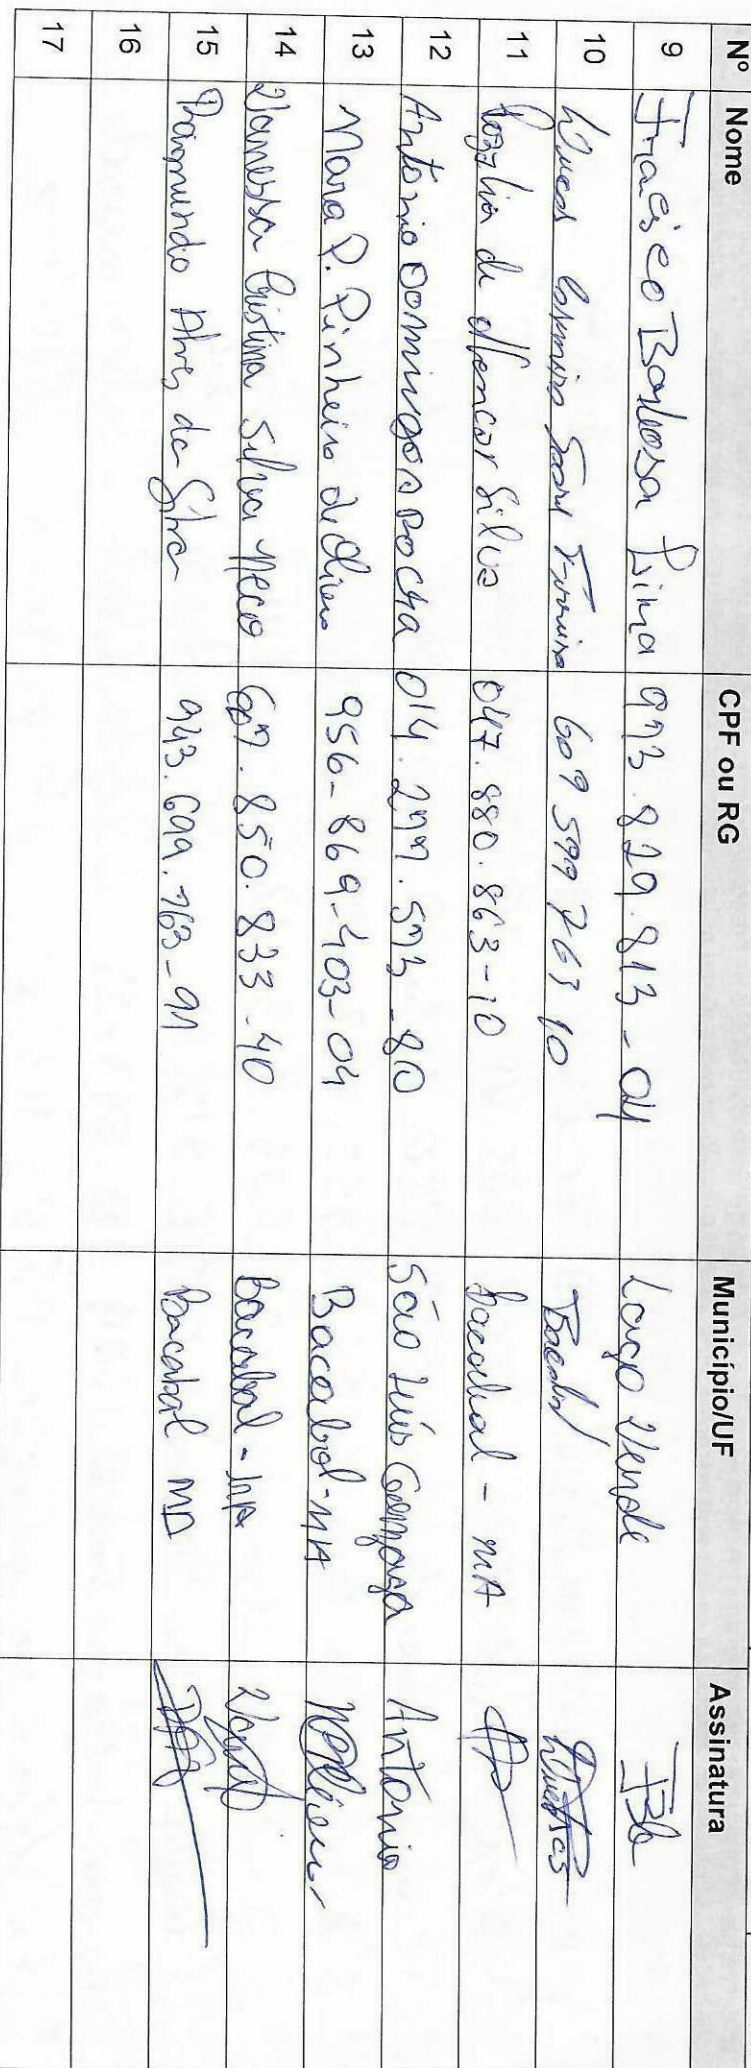 Nº Nome CPF ou RG Município/UF Assinatura
9 Fracisco Barbosa Lima 973.829.813-04 Lago Verde FBL
10 609 599 763 10 Bacabal
11 de Alencar Silva 047.880.863-10 Bacabal - MA
12 Antonio Domingos Rocha 014.277.573-80 São Luis Gonzaga Antonio
13 Mara P. Pinheiro de Oliveira 956-869-403-04 Bacabal-MA
14 Vanessa Cristina Silva Neco 607.850.833-40 Bacabal-MA
15 Raimundo Alves da Silva 943.699.763-91 Bacabal MA
16
17